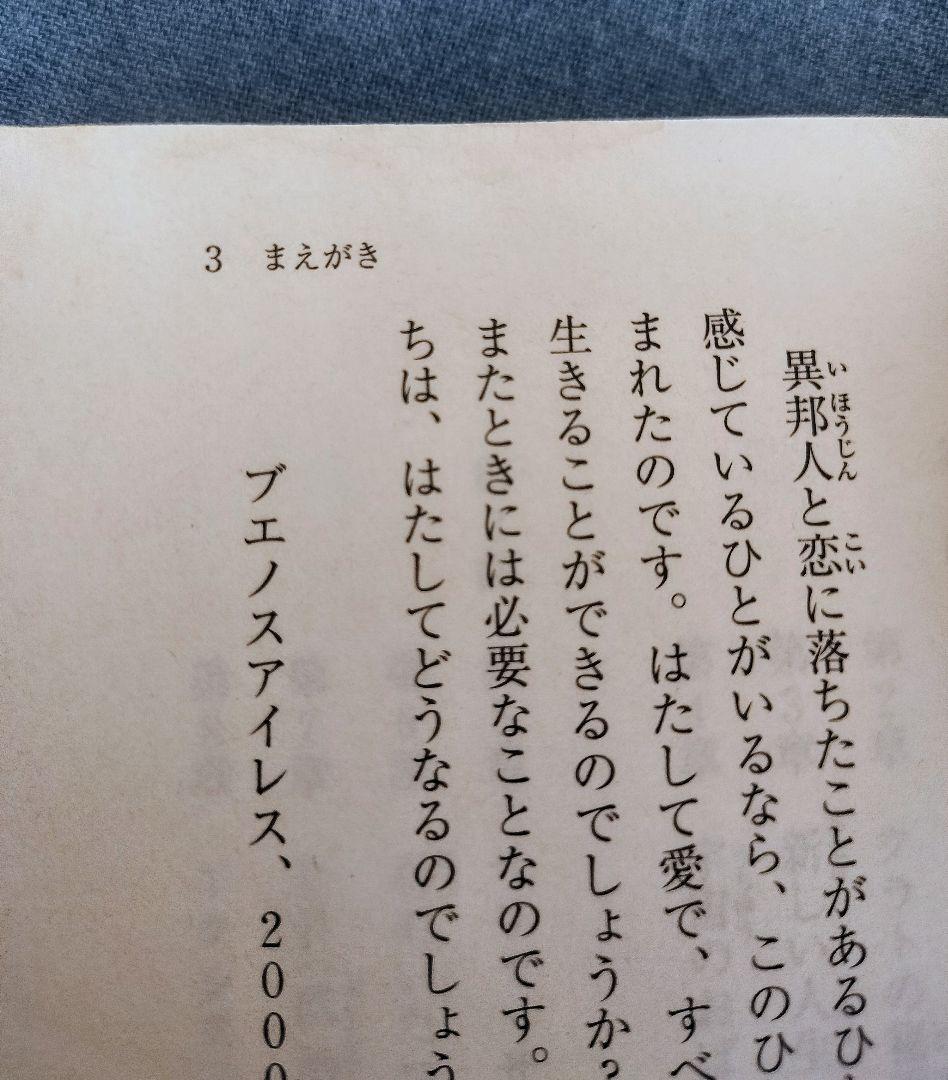 3 まえがき
異邦人と恋に落ちたことがあるひ
いほうじん こい
感じているひとがいるなら、このひ
まれたのです。はたして愛で、すべ
生きることができるのでしょうか?
またときには必要なことなのです。
ちは、はたしてどうなるのでしょう
ブエノスアイレス、2000